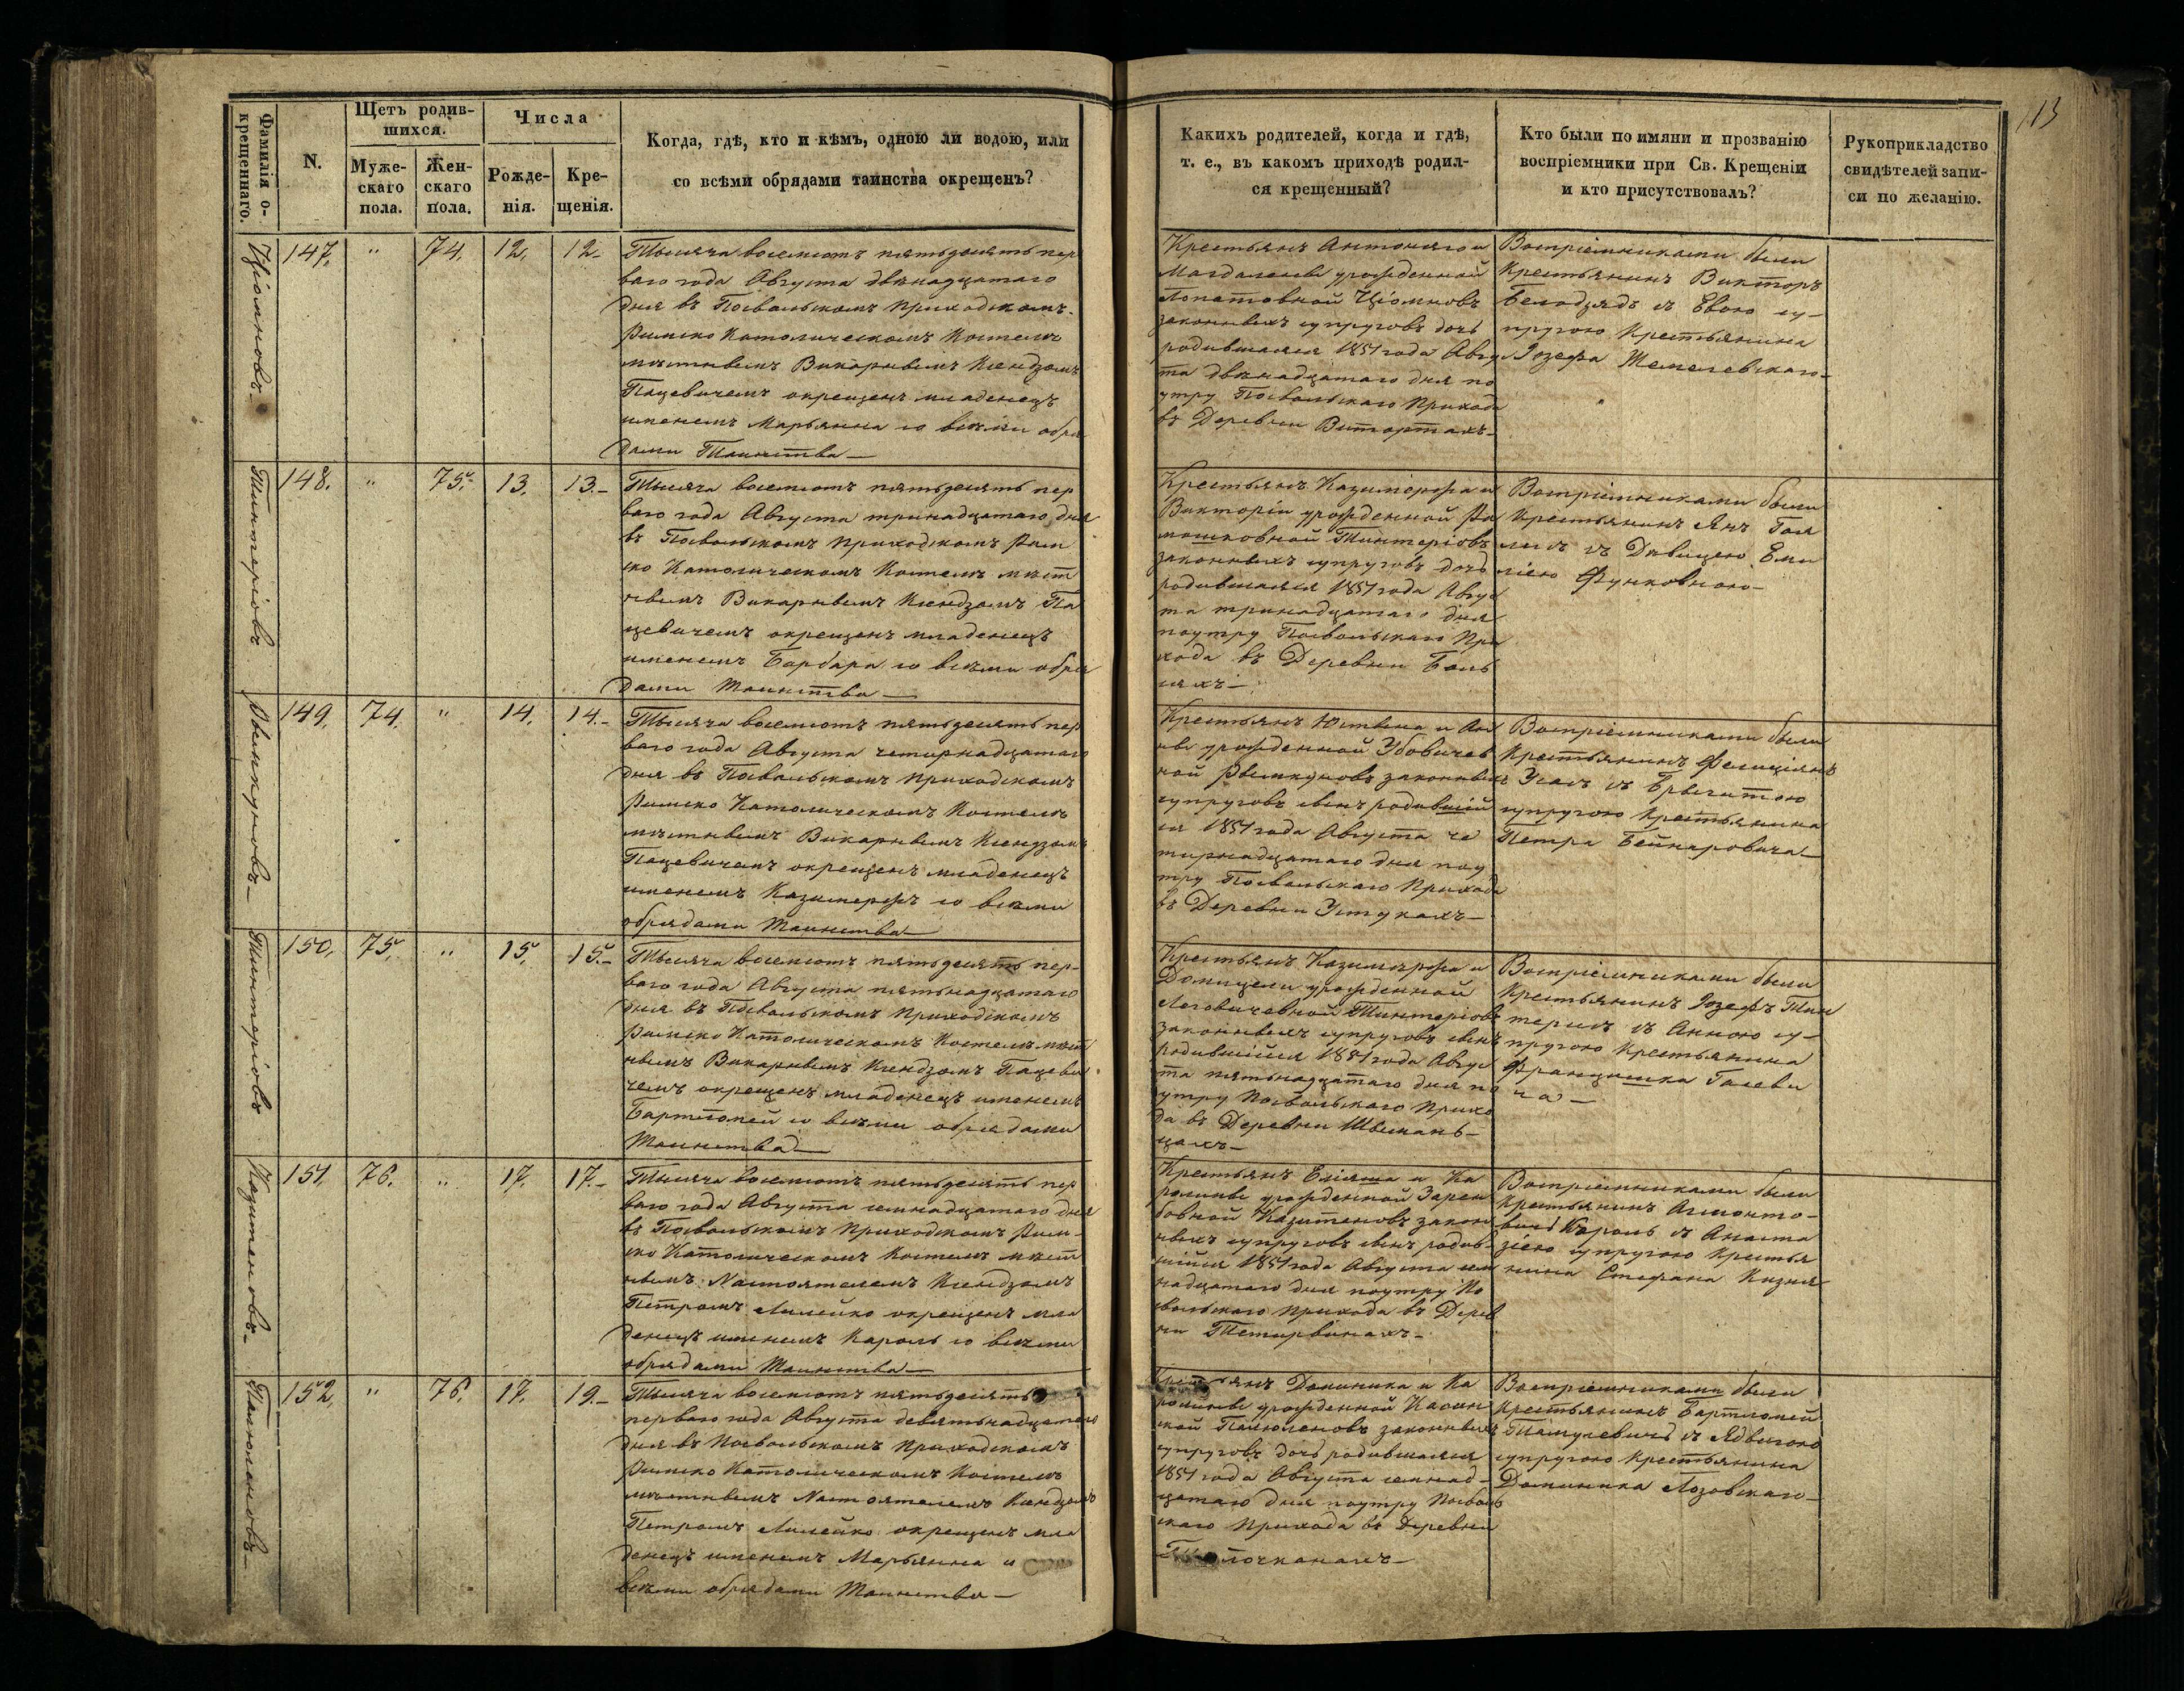 113
Фамилія о-
крещеннаго.
N.
Щетъ родив-
шихся.
Муже-
скаго
пола.
Жен-
скаго
пола.
Числа
Рожде-
нія.
Кре-
щенія.
Когда, гдѣ, кто и кѣмъ, одною ли водою, или
со всѣми обрядами таинства окрещенъ?
Какихъ родителей, когда и гдѣ,
т. е., въ какомъ приходѣ родил-
ся крещенный?
Кто были по имяни и прозванію
воспріемники при Св. Крещеніи
и кто присутствовалъ?
Рукоприкладство
свидѣтелей запи-
си по желанію.
147. " 74. 12. 12-
Тысяча восемсотъ пятьдесятъ пер
ваго года Августа двѣнадцатаго
дня въ Посвольскомъ Приходскомъ
Римско Католическомъ Костелѣ
мѣстнымъ Викарнымъ Ксендзомъ
Пацевичемъ окрещенъ младенецъ
именемъ Марьянна со всѣми обря
дами Таинства—
Крестьянъ Антонего и
Магдалены урожденной
Лопатовной Ціомновъ
законныхъ супруговъ дочь
родившаяся 1851 года Авгус
та двѣнадцатаго дня по
утру Посвольскаго Прихода
въ Деревни Витартахъ—
Воспріемниками были
Крестьянинъ Викторъ
съ Евою су-
пругою Крестьянина
Іозефа
Тинтеріовъ
148. " 75.- 13. 13.-
Тысяча восемсотъ пятьдесятъ пер
ваго года Августа тринадцатаго дня
въ Посвольскомъ Приходскомъ Рим
ско Католическомъ Костелѣ мѣст
нымъ Викарнымъ Ксендзомъ Па
цевичемъ окрещенъ младенецъ
именемъ Барбара со всѣми обря
дами Таинства—
Крестьянъ Казимерфа и
Викторіи урожденной Ра
машковной Тинтеріовъ
законныхъ супруговъ дочь
родившаяся 1851 года Авгус
та тринадцатаго дня
поутру Посвольскаго При
хода въ Деревни Баль
сяхъ—
Воспріемниками были
Крестьянинъ Янъ
съ Дѣвицею Еми
ліею Функовною—
Рымкуновъ—
149. 74. " 14. 14.-
Тысяча восемсотъ пятьдесятъ пер
ваго года Августа четырнадцатаго
дня въ Посвольскомъ Приходскомъ
Римско Католическомъ Костелѣ
мѣстнымъ Викарнымъ Ксендзомъ
Пацевичемъ окрещенъ младенецъ
именемъ Казимерфъ со всѣми
обрядами Таинства—
Крестьянъ Юстына и Ан
ны урожденной Убовичев
ной Рымкуновъ законныхъ
супруговъ сынъ родившій
ся 1851 года Августа че
тырнадцатаго дня поу
тру Посвольскаго Прихода
въ Деревни Устукахъ—
Воспріемниками были
Крестьянинъ Фелиціянъ
съ Брыгитою
супругою Крестьянина
Петра Бейнаровича—
Тинтеріовъ
150. 75. " 15. 15.-
Тысяча восемсотъ пятьдесятъ пер-
ваго года Августа пятьнадцатаго
дня въ Посвольскомъ Приходскомъ
Римско Католическомъ Костелѣ мѣст
нымъ Викарнымъ Ксендзомъ Пацеви
чемъ окрещенъ младенецъ именемъ
Бартломей со всѣми обрядами
Таинства—
Крестьянъ Казимерфа и
Домицели урожденной
Тинтеріовъ
законныхъ супруговъ сынъ
родившійся 1851 года Авгус
та пятьнадцатаго дня по
утру Посвольскаго Прихо
да въ Деревни Шиманъ-
цахъ—
Воспріемниками были
Крестьянинъ Іозефъ Тин
терисъ съ Анною су-
пругою Крестьянина
Францишка Галеви
ча—
Казитеновъ—
151. 76. " 17. 17.-
Тысяча восемсотъ пятьдесятъ пер
ваго года Августа семнадцатаго дня
въ Посвольскомъ Приходскомъ Рим-
ско Католическомъ Костелѣ мѣст
нымъ Настоятелемъ Ксендзомъ
Петромъ Лилейко окрещенъ мла
денецъ именемъ Кароль со всѣми
обрядами Таинства—
Крестьянъ Еліяша и Ка
ролины урожденной Зарем
бовной Казитеновъ закон
ныхъ супруговъ сынъ родив-
шійся 1851 года Августа сем
надцатаго дня поутру По
свольскаго Прихода въ Дерев
ни Тетирвинахъ—
Воспріемниками были
Крестьянинъ
Кароль съ Анаста
зіею супругою Крестья
нина Стефана
152. " 76. 17. 19.-
Тысяча восемсотъ пятьдесятъ
перваго года Августа девятьнадцатаго
дня въ Посвольскомъ Приходскомъ
Римско Католическомъ Костелѣ
мѣстнымъ Настоятелемъ Ксендзомъ
Петромъ Лилейко окрещенъ мла
денецъ именемъ Марьянна и
всѣми обрядами Таинства—
Крестьянъ Доминика и Ка
ролины урожденной
законныхъ
супруговъ дочь родившаяся
1851 года Августа семнад-
цатаго дня поутру Посволь
скаго Прихода въ Деревни
Воспріемниками были
Крестьянинъ Бартломей
съ Ядвигою
супругою Крестьянина
Доминика Лозовскаго—